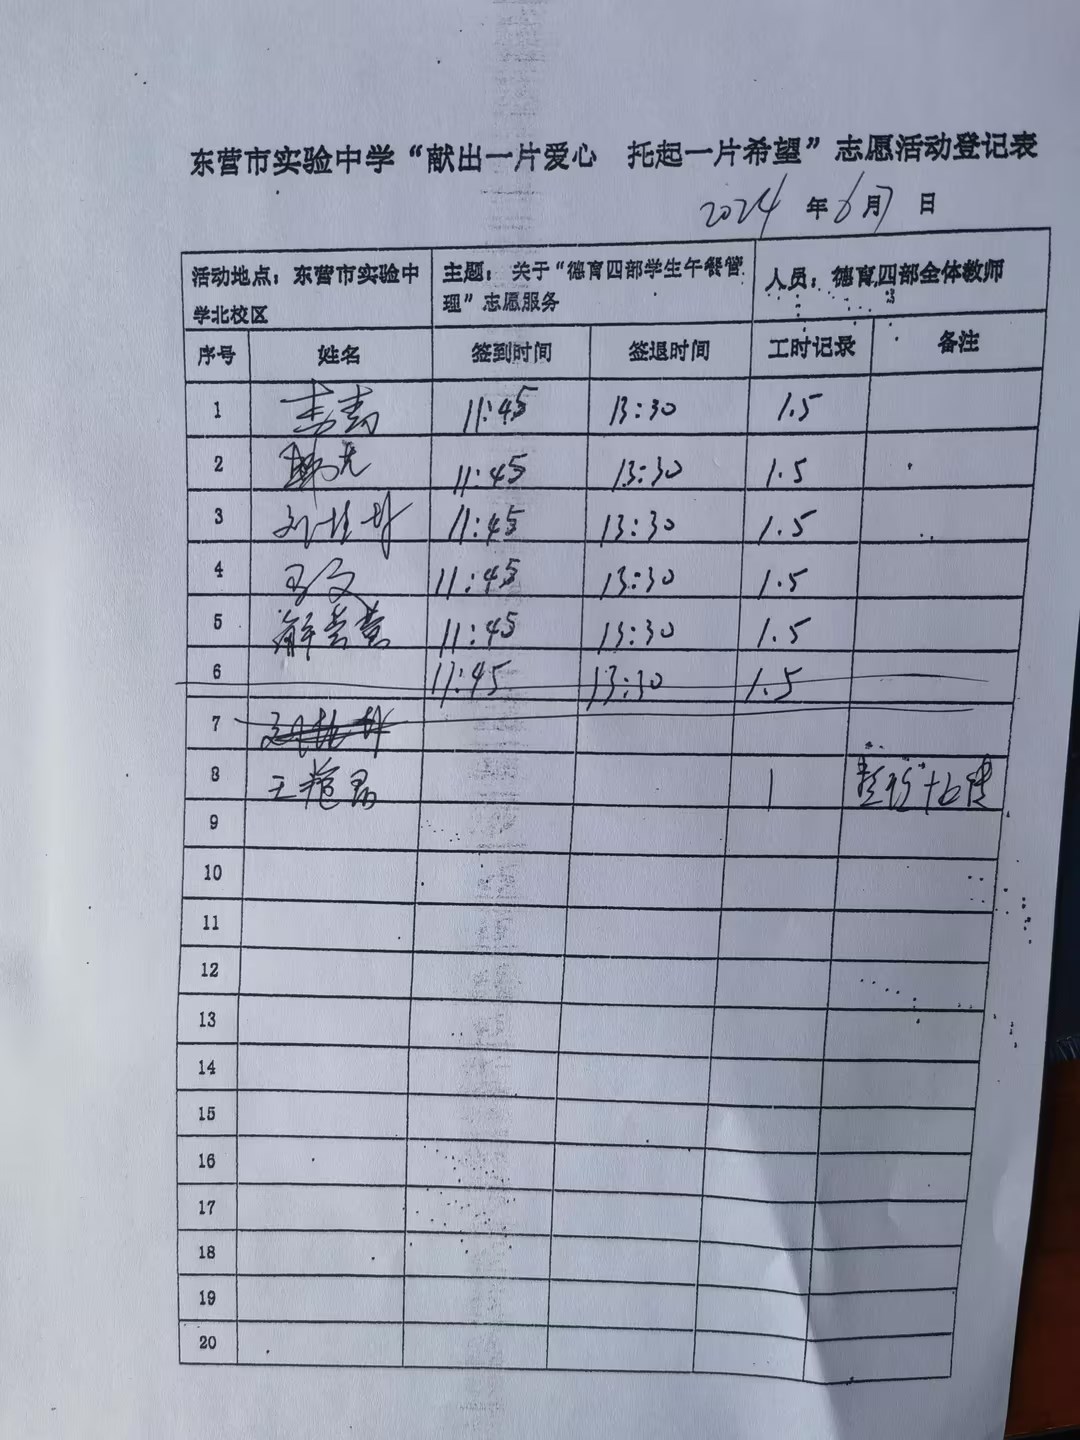 东营市实验中学“献出一片爱心 托起一片希望”志愿活动登记表
2024年6月7日
活动地点：东营市实验中学北校区 主题：关于“德育四部学生午餐管理”志愿服务 人员：德育四部全体教师
序号 姓名 签到时间 签退时间 工时记录 备注
1 11:45 13:30 1.5
2 11:45 13:30 1.5
3 11:45 13:30 1.5
4 王文 11:45 13:30 1.5
5 11:45 13:30 1.5
6 11:45 13:30 1.5
7
8 1
9
10
11
12
13
14
15
16
17
18
19
20